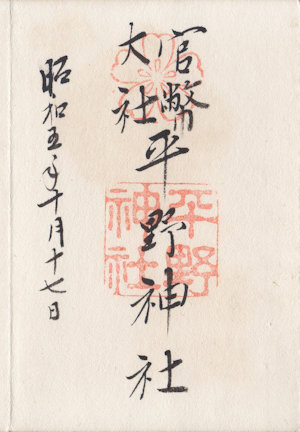 官幣
大社
平野神社
昭和五年十月十七日
平野
神社